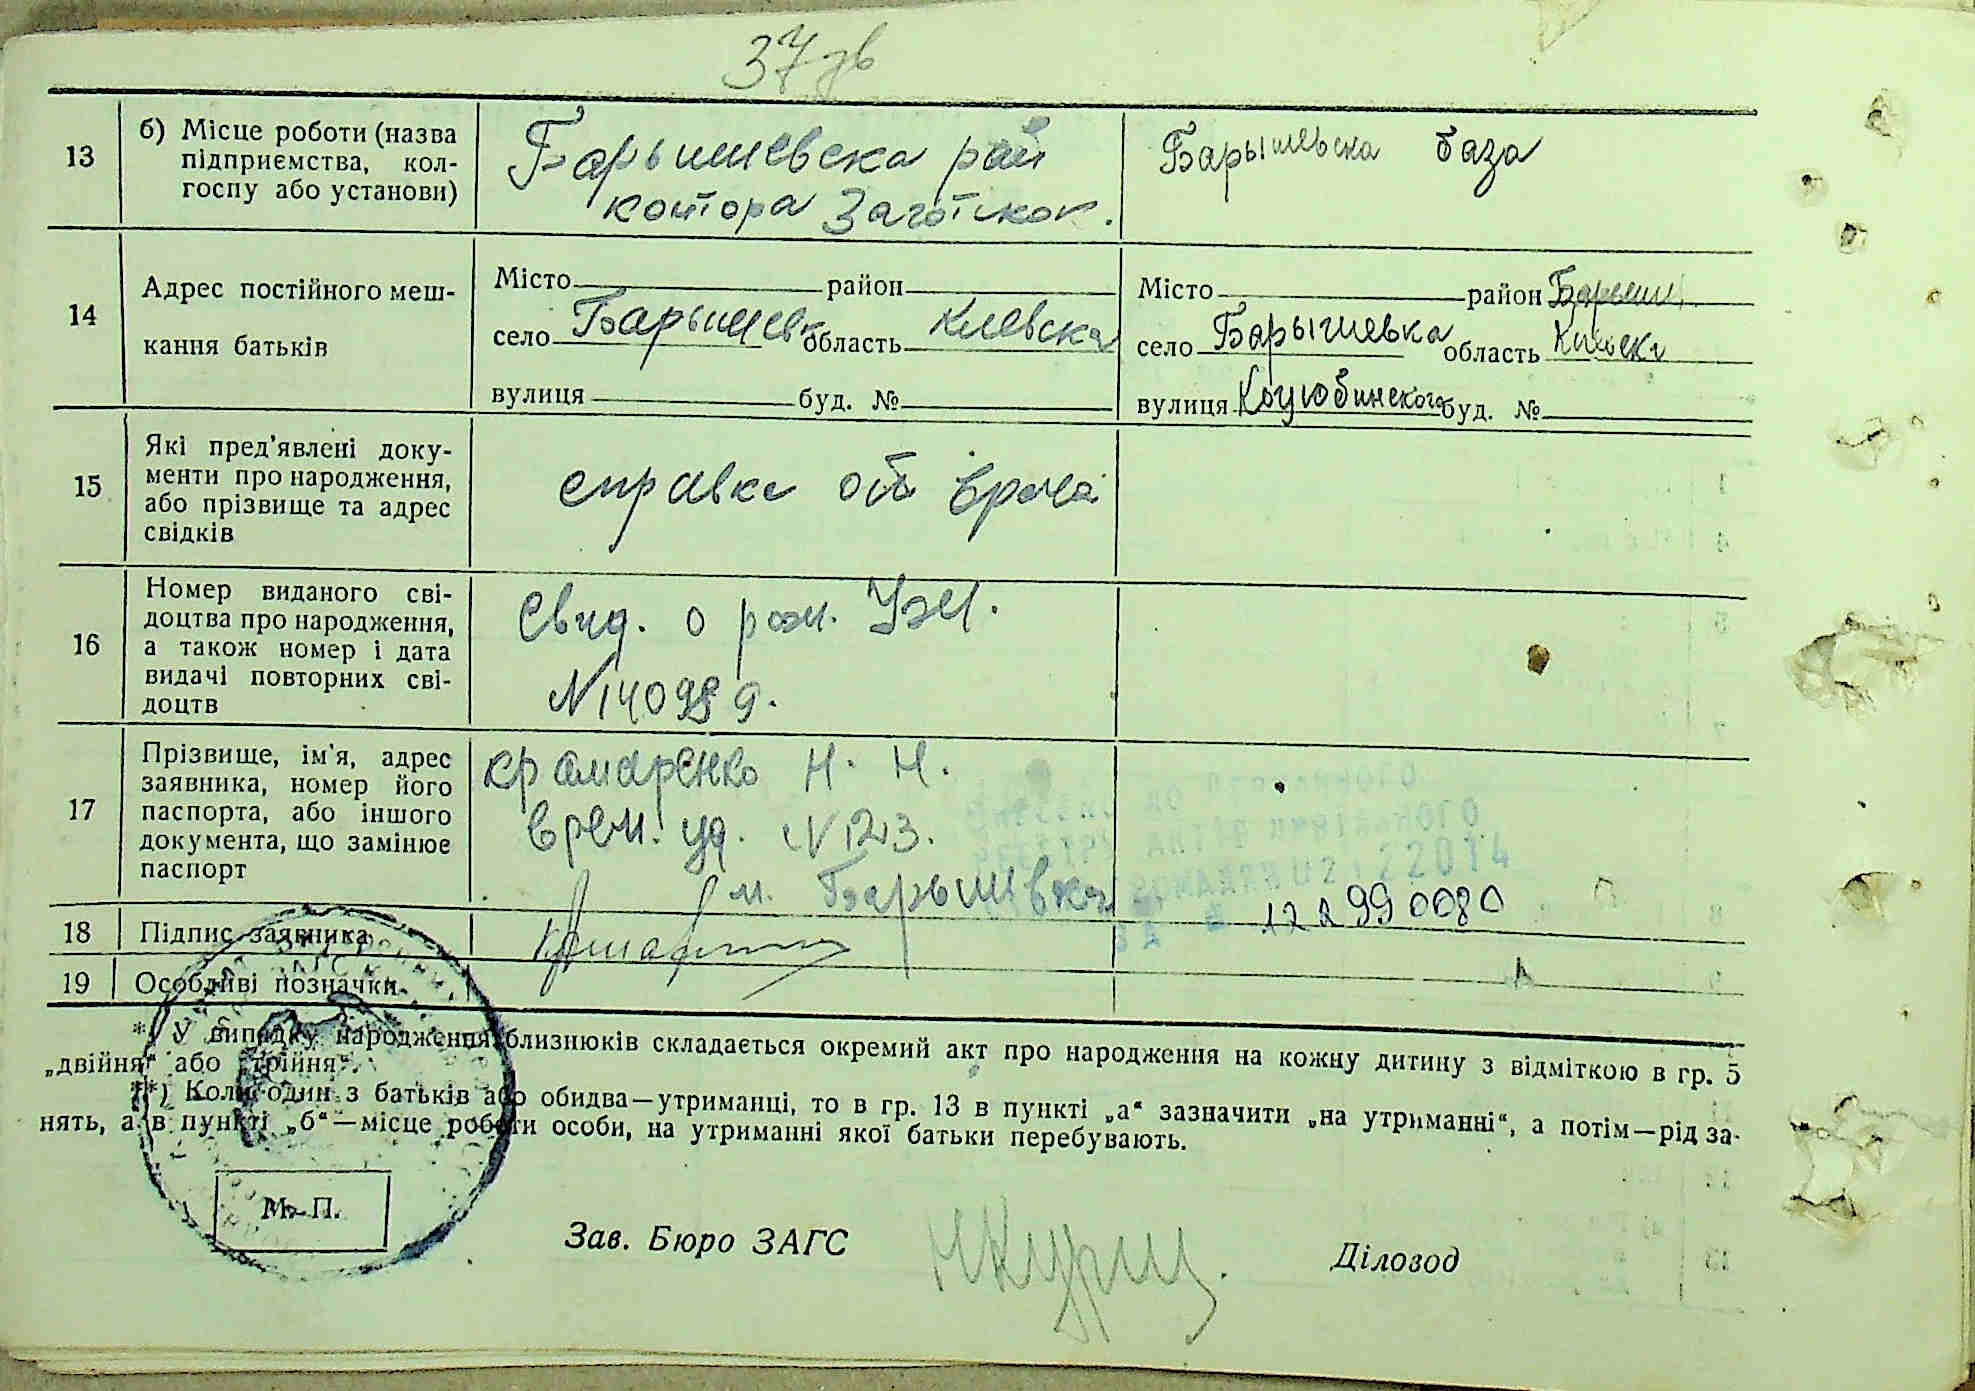 37 зв
13
б) Місце роботи (назва
підприємства, кол-
госпу або установи)
Барышевска рай
контора Заготскот.
Барышевска база
14
Адрес постійного меш-
кання батьків
Місто район
село Барышевка область Киевска
вулиця буд. №
Місто район Барыш.
село Барышевка область Киевска
вулиця Коцюбинского буд. №
15
Які пред'явлені доку-
менти про народження,
або прізвище та адрес
свідків
справка от врача
16
Номер виданого сві-
доцтва про народження,
а також номер і дата
видачі повторних сві-
доцтв
Свид. о рож.
N 140989.
17
Прізвище, ім'я, адрес
заявника, номер його
паспорта, або іншого
документа, що замінює
паспорт
Крамаренко Н. Н.
врем. уд. N 123.
м. Барышевка
18
Підпис заявника
19
Особливі позначки
*) У випадку народження близнюків складається окремий акт про народження на кожну дитину з відміткою в гр. 5
„двійня“ або „трійня“.
**) Коли один з батьків або обидва—утриманці, то в гр. 13 в пункті „а“ зазначити „на утриманні“, а потім—рід за-
нять, а в пункті „б“—місце роботи особи, на утриманні якої батьки перебувають.
М. П.
Зав. Бюро ЗАГС
Діловод